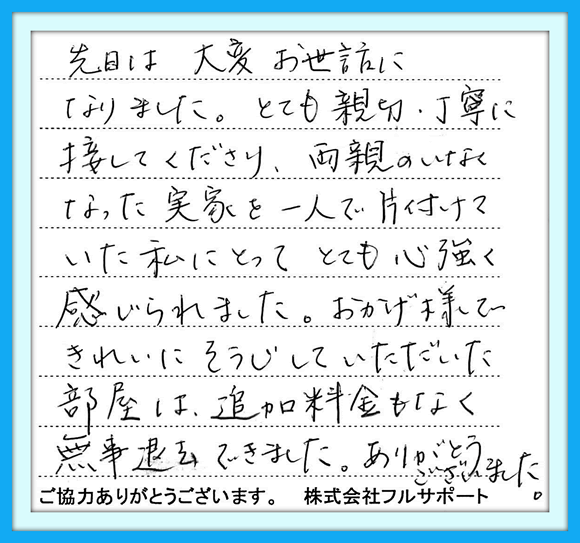 先日は 大変 お世話に
なりました。とても親切・丁寧に
接してくださり、両親のいなく
なった実家を一人で片付けて
いた私にとって とても心強く
感じられました。おかげ様で
きれいに そうじしていただいた
部屋は、追加料金もなく
無事退去できました。ありがとう
ございました。
ご協力ありがとうございます。 株式会社フルサポート